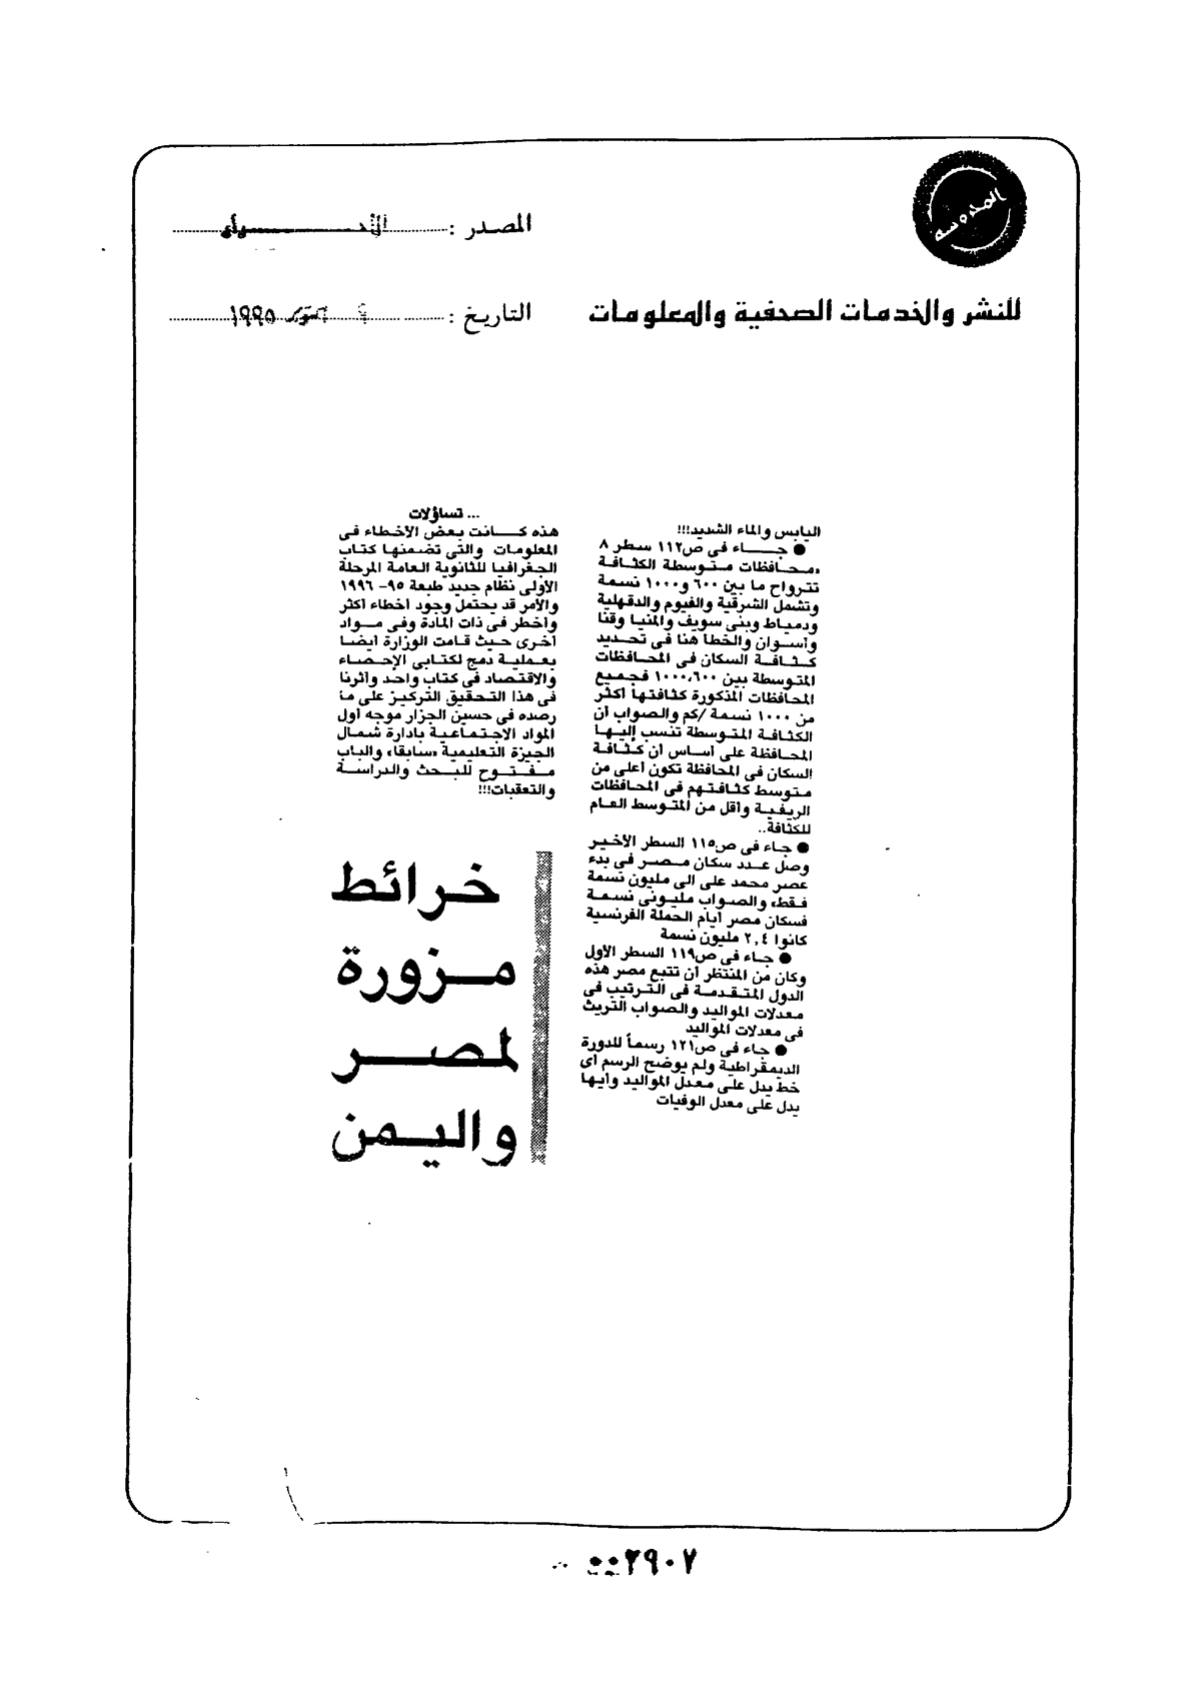 المدونة
المصدر : الأحياء
للنشر والخدمات الصحفية والمعلومات
التاريخ : ٩ أكتوبر ١٩٩٥
اليابس والماء الشديد!!!
● جاء فى ص١١٢ سطر ٨
«محافظات متوسطة الكثافة
تترواح ما بين ٦٠٠ و١٠٠٠ نسمة
وتشمل الشرقية والفيوم والدقهلية
ودمياط وبنى سويف والمنيا وقنا
وأسوان والخطا هنا فى تحديد
كثافة السكان فى المحافظات
المتوسطة بين ١٠٠٠،٦٠٠ فجميع
المحافظات المذكورة كثافتها أكثر
من ١٠٠٠ نسمة /كم والصواب أن
الكثافة المتوسطة تنسب إليها
المحافظة على أساس أن كثافة
السكان فى المحافظة تكون أعلى من
متوسط كثافتهم فى المحافظات
الريفية وأقل من المتوسط العام
للكثافة..
● جاء فى ص١١٥ السطر الأخير
وصل عدد سكان مصر فى بدء
عصر محمد على الى مليون نسمة
فقط، والصواب مليونى نسمة
فسكان مصر أيام الحملة الفرنسية
كانوا ٢,٤ مليون نسمة
● جاء فى ص١١٩ السطر الأول
وكان من المنتظر أن تتبع مصر هذه
الدول المتقدمة فى الترتيب فى
معدلات المواليد والصواب التريث
فى معدلات المواليد
● جاء فى ص١٢١ رسماً للدورة
الديمقراطية ولم يوضح الرسم أى
خط يدل على معدل المواليد وأيها
يدل على معدل الوفيات
... تساؤلات
هذه كانت بعض الأخطاء فى
المعلومات والتى تضمنها كتاب
الجغرافيا للثانوية العامة المرحلة
الأولى نظام جديد طبعة ٩٥- ١٩٩٦
والأمر قد يحتمل وجود أخطاء أكثر
وأخطر فى ذات المادة وفى مواد
أخرى حيث قامت الوزارة أيضا
بعملية دمج لكتابى الإحصاء
والاقتصاد فى كتاب واحد وآثرنا
فى هذا التحقيق التركيز على ما
رصده فى حسين الجزار موجه أول
المواد الاجتماعية بادارة شمال
الجيزة التعليمية «سابقا» والباب
مفتوح للبحث والدراسة
والتعقبات!!!
خرائط
مزورة
لمصر
واليمن
٢٩٠٧